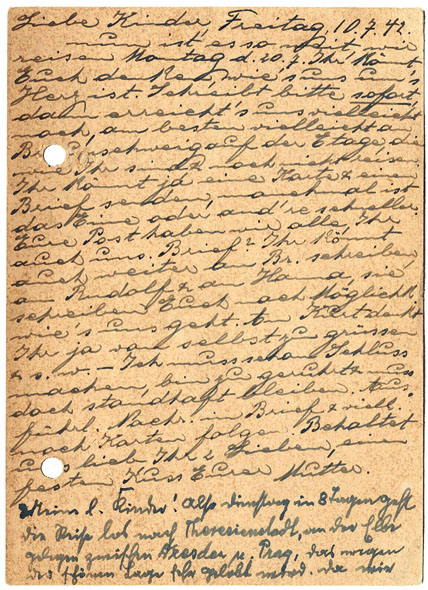 Liebe Kinder, Freitag, 10.7.42.
nun ist es so weit, wir
reisen Montag d. 20.7. Ihr könnt
Euch denken wie's uns um's
Herz ist. Schreibt bitte sofort,
dann erreicht's uns vielleicht
noch, am besten vielleicht an
Braunschweig auf der Etage, die
wie Ihr sind noch nicht reisen.
Ihr könnt ja eine Karte & einen
Brief senden, manchmal ist
das Eine oder and're schneller.
Eure Post haben wir alle, Ihr
auch uns. Brief & Ihr könnt
auch weiter an Br. schreiben,
an Rudolf & an Hanna, sie
schreiben Euch nach Möglichk.
wie's uns geht. An Kurt denkt
Ihr ja von selbst zu grüssen
u. s. w. – Ich muss schon Schluss
machen, bin zu gerührt & muss
doch standhaft bleiben. Aus-
führl. Nachr. im Brief & viell.
noch Karten folgen. Behaltet
uns lieb Ihr 2 Lieben, einen
festen Kuss Eurer Mutter.
Meine l. Kinder! Also Dienstag in 8 Tagen geht
die Reise los nach Theresienstadt, an der Elbe
gelegen zwischen Dresden u. Prag, das wegen
der schönen Lage sehr gelobt wird. Da wir